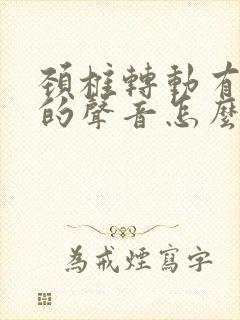 頚椎轉動有
的聲音怎麼
為戒煙寫字